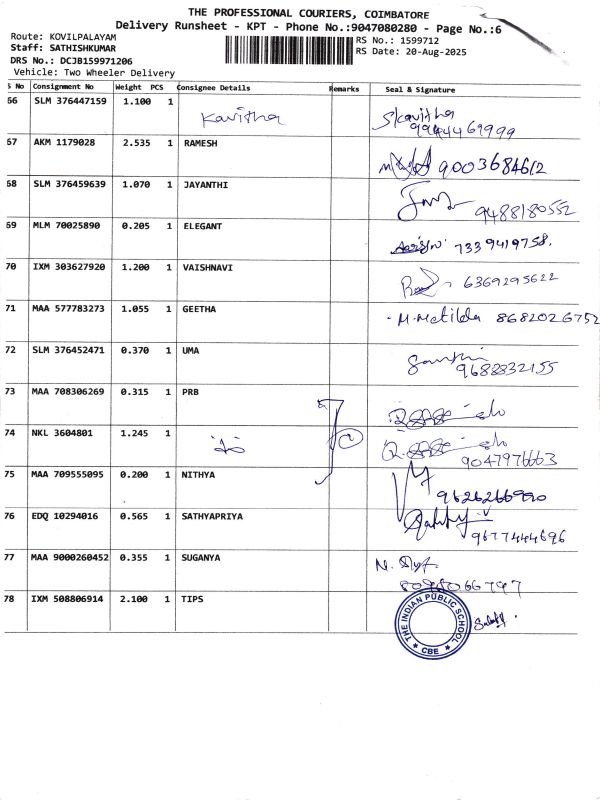 THE PROFESSIONAL COURIERS, COIMBATORE
Delivery Runsheet - KPT - Phone No.:9047080280 - Page No.:6
Route: KOVILPALAYAM
RS No.: 1599712
Staff: SATHISHKUMAR
RS Date: 20-Aug-2025
DRS No.: DCJB159971206
Vehicle: Two Wheeler Delivery
S No Consignment No Weight PCS Consignee Details Remarks Seal & Signature
66 SLM 376447159 1.100 1 Kavitha SKavitha
9944469999
67 AKM 1179028 2.535 1 RAMESH 9003684612
68 SLM 376459639 1.070 1 JAYANTHI
9488180552
69 MLM 70025890 0.205 1 ELEGANT 7339419758.
70 IXM 303627920 1.200 1 VAISHNAVI 6369295622
71 MAA 577783273 1.055 1 GEETHA M.Matilda 8682026752
72 SLM 376452471 0.370 1 UMA
9688832155
73 MAA 708306269 0.315 1 PRB
74 NKL 3604801 1.245 1
9047976663
75 MAA 709555095 0.200 1 NITHYA
9626266990
76 EDQ 10294016 0.565 1 SATHYAPRIYA
9677444696
77 MAA 9000260452 0.355 1 SUGANYA
78 IXM 508806914 2.100 1 TIPS THE INDIAN PUBLIC SCHOOL
CBE